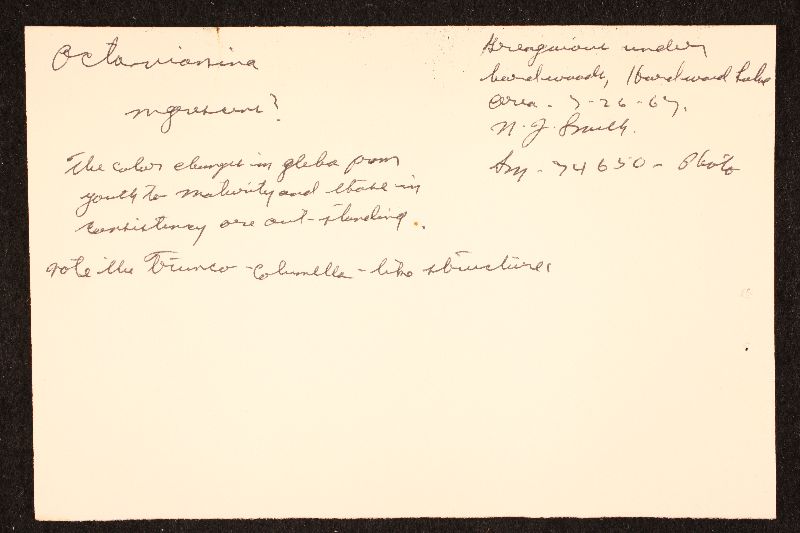 Octavianina
nigrescens?
The color changes in gleba from
youth to maturity and those in
consistency are out-standing.
note the Trunco-columella-like structures
Gregarious under
hardwoods, Hardwood Lake
area. 7-26-67.
N. J. Smith.
Sm-74650- Photo